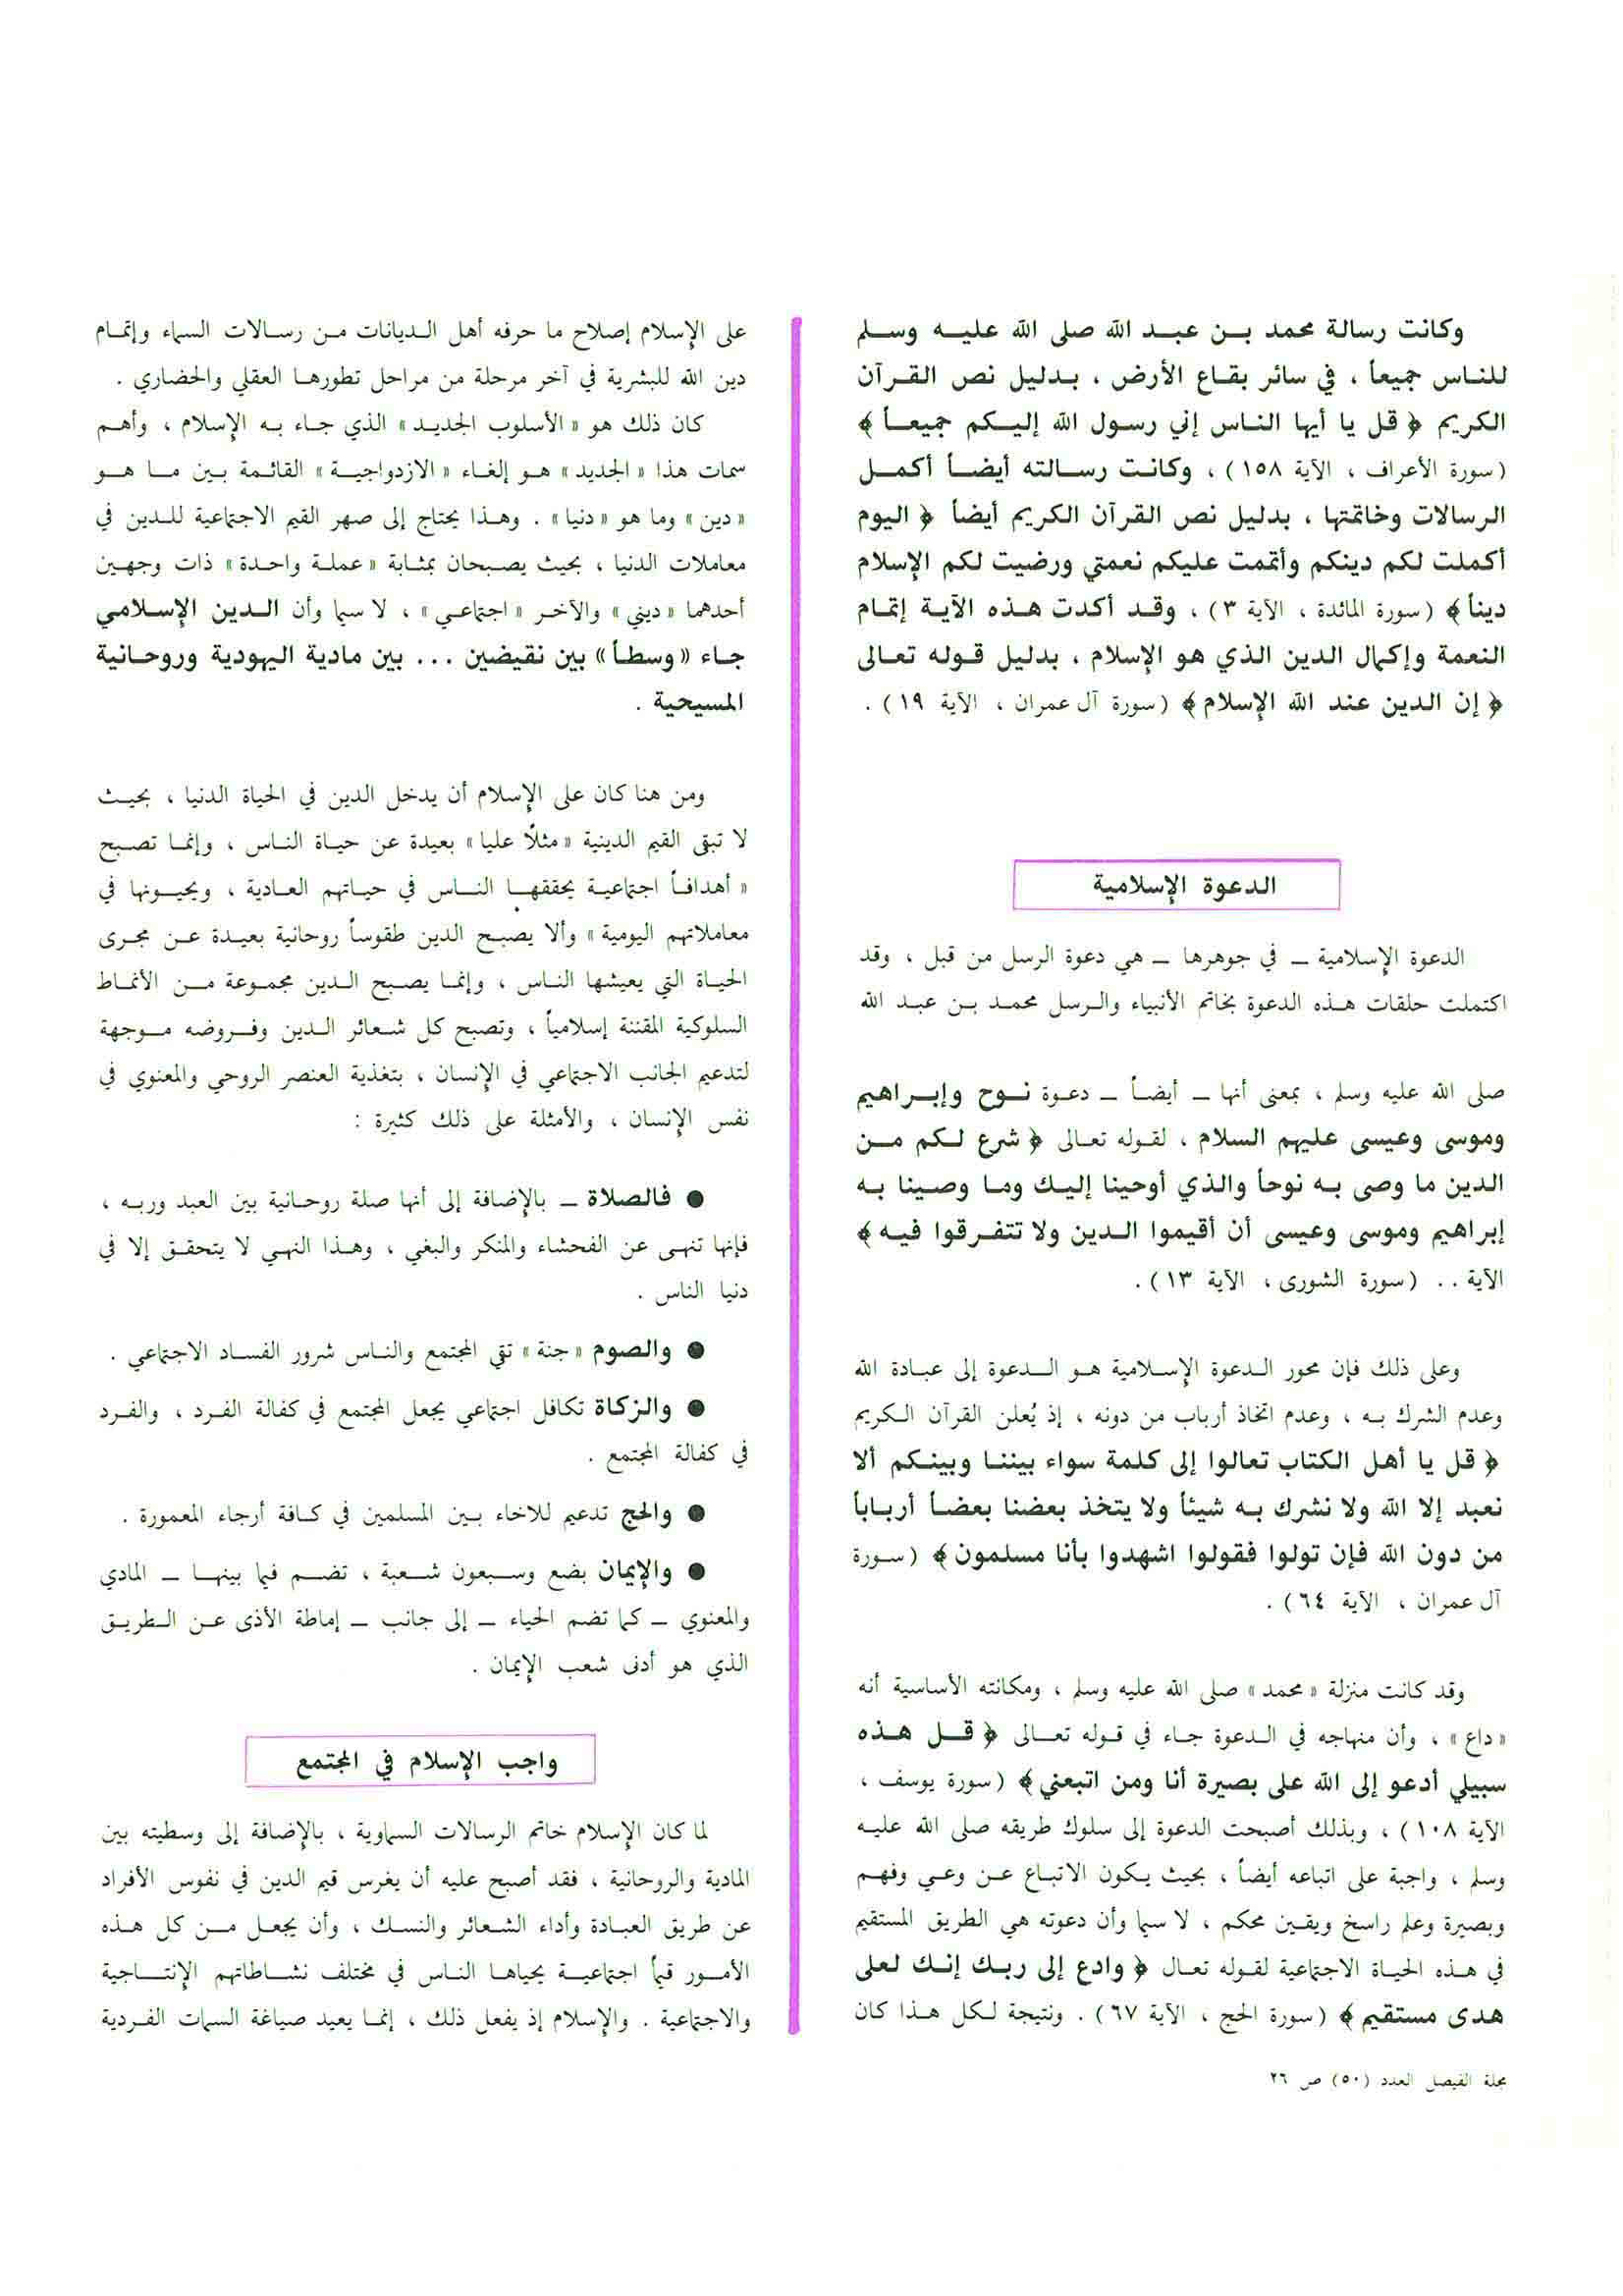 وكانت رسالة محمد بن عبد الله صلى الله عليه وسلم
للناس جميعاً ، في سائر بقاع الأرض ، بدليل نص القرآن
الكريم ﴿ قل يا أيها الناس إني رسول الله إليكم جميعاً ﴾
(سورة الأعراف ، الآية ١٥٨) ، وكانت رسالته أيضاً أكمل
الرسالات وخاتمتها ، بدليل نص القرآن الكريم أيضاً ﴿ اليوم
أكملت لكم دينكم وأتممت عليكم نعمتي ورضيت لكم الإسلام
ديناً ﴾ (سورة المائدة ، الآية ٣) ، وقد أكدت هذه الآية إتمام
النعمة وإكمال الدين الذي هو الإسلام ، بدليل قوله تعالى
﴿ إن الدين عند الله الإسلام ﴾ (سورة آل عمران ، الآية ١٩) .
الدعوة الإسلامية
الدعوة الإسلامية ـ في جوهرها ـ هي دعوة الرسل من قبل ، وقد
اكتملت حلقات هذه الدعوة بخاتم الأنبياء والرسل محمد بن عبد الله
صلى الله عليه وسلم ، بمعنى أنها ـ أيضاً ـ دعوة نوح وإبراهيم
وموسى وعيسى عليهم السلام ، لقوله تعالى ﴿ شرع لكم من
الدين ما وصى به نوحاً والذي أوحينا إليك وما وصينا به
إبراهيم وموسى وعيسى أن أقيموا الدين ولا تتفرقوا فيه ﴾
الآية .. (سورة الشورى ، الآية ١٣) .
وعلى ذلك فإن محور الدعوة الإسلامية هو الدعوة إلى عبادة الله
وعدم الشرك به ، وعدم اتخاذ أرباب من دونه ، إذ يُعلن القرآن الكريم
﴿ قل يا أهل الكتاب تعالوا إلى كلمة سواء بيننا وبينكم ألا
نعبد إلا الله ولا نشرك به شيئاً ولا يتخذ بعضنا بعضاً أرباباً
من دون الله فإن تولوا فقولوا اشهدوا بأنا مسلمون ﴾ (سورة
آل عمران ، الآية ٦٤) .
وقد كانت منزلة «محمد» صلى الله عليه وسلم ، ومكانته الأساسية أنه
«داع» ، وأن منهاجه في الدعوة جاء في قوله تعالى ﴿ قل هذه
سبيلي أدعو إلى الله على بصيرة أنا ومن اتبعني ﴾ (سورة يوسف ،
الآية ١٠٨) ، وبذلك أصبحت الدعوة إلى سلوك طريقه صلى الله عليه
وسلم ، واجبة على اتباعه أيضاً ، بحيث يكون الاتباع عن وعي وفهم
وبصيرة وعلم راسخ ويقين محكم ، لا سيما وأن دعوته هي الطريق المستقيم
في هذه الحياة الاجتماعية لقوله تعال ﴿ وادع إلى ربك إنك لعلى
هدى مستقيم ﴾ (سورة الحج ، الآية ٦٧) . ونتيجة لكل هذا كان
على الإسلام إصلاح ما حرفه أهل الديانات من رسالات السماء وإتمام
دين الله للبشرية في آخر مرحلة من مراحل تطورها العقلي والحضاري .
كان ذلك هو «الأسلوب الجديد» الذي جاء به الإسلام ، وأهم
سمات هذا «الجديد» هو إلغاء «الازدواجية» القائمة بين ما هو
«دين» وما هو «دنيا» . وهذا يحتاج إلى صهر القيم الاجتماعية للدين في
معاملات الدنيا ، بحيث يصبحان بمثابة «عملة واحدة» ذات وجهين
أحدهما «ديني» والآخر «اجتماعي» ، لا سيما وأن الدين الإسلامي
جاء «وسطاً» بين نقيضين ... بين مادية اليهودية وروحانية
المسيحية .
ومن هنا كان على الإسلام أن يدخل الدين في الحياة الدنيا ، بحيث
لا تبقى القيم الدينية «مثلًا عليا» بعيدة عن حياة الناس ، وإنما تصبح
«أهدافاً اجتماعية يحققها الناس في حياتهم العادية ، ويحيونها في
معاملاتهم اليومية» وألا يصبح الدين طقوساً روحانية بعيدة عن مجرى
الحياة التي يعيشها الناس ، وإنما يصبح الدين مجموعة من الأنماط
السلوكية المقننة إسلامياً ، وتصبح كل شعائر الدين وفروضه موجهة
لتدعيم الجانب الاجتماعي في الإنسان ، بتغذية العنصر الروحي والمعنوي في
نفس الإنسان ، والأمثلة على ذلك كثيرة :
● فالصلاة ـ بالإضافة إلى أنها صلة روحانية بين العبد وربه ،
فإنها تنهى عن الفحشاء والمنكر والبغي ، وهذا النهي لا يتحقق إلا في
دنيا الناس .
● والصوم «جنة» تقي المجتمع والناس شرور الفساد الاجتماعي .
● والزكاة تكافل اجتماعي يجعل المجتمع في كفالة الفرد ، والفرد
في كفالة المجتمع .
● والحج تدعيم للاخاء بين المسلمين في كافة أرجاء المعمورة .
● والإيمان بضع وسبعون شعبة ، تضم فيما بينها ـ المادي
والمعنوي ـ كما تضم الحياء ـ إلى جانب ـ إماطة الأذى عن الطريق
الذي هو أدنى شعب الإيمان .
واجب الإسلام في المجتمع
لما كان الإسلام خاتم الرسالات السماوية ، بالإضافة إلى وسطيته بين
المادية والروحانية ، فقد أصبح عليه أن يغرس قيم الدين في نفوس الأفراد
عن طريق العبادة وأداء الشعائر والنسك ، وأن يجعل من كل هذه
الأمور قيماً اجتماعية يحياها الناس في مختلف نشاطاتهم الإنتاجية
والاجتماعية . والإسلام إذ يفعل ذلك ، إنما يعيد صياغة السمات الفردية
مجلة الفيصل العدد (٥٠) ص ٢٦